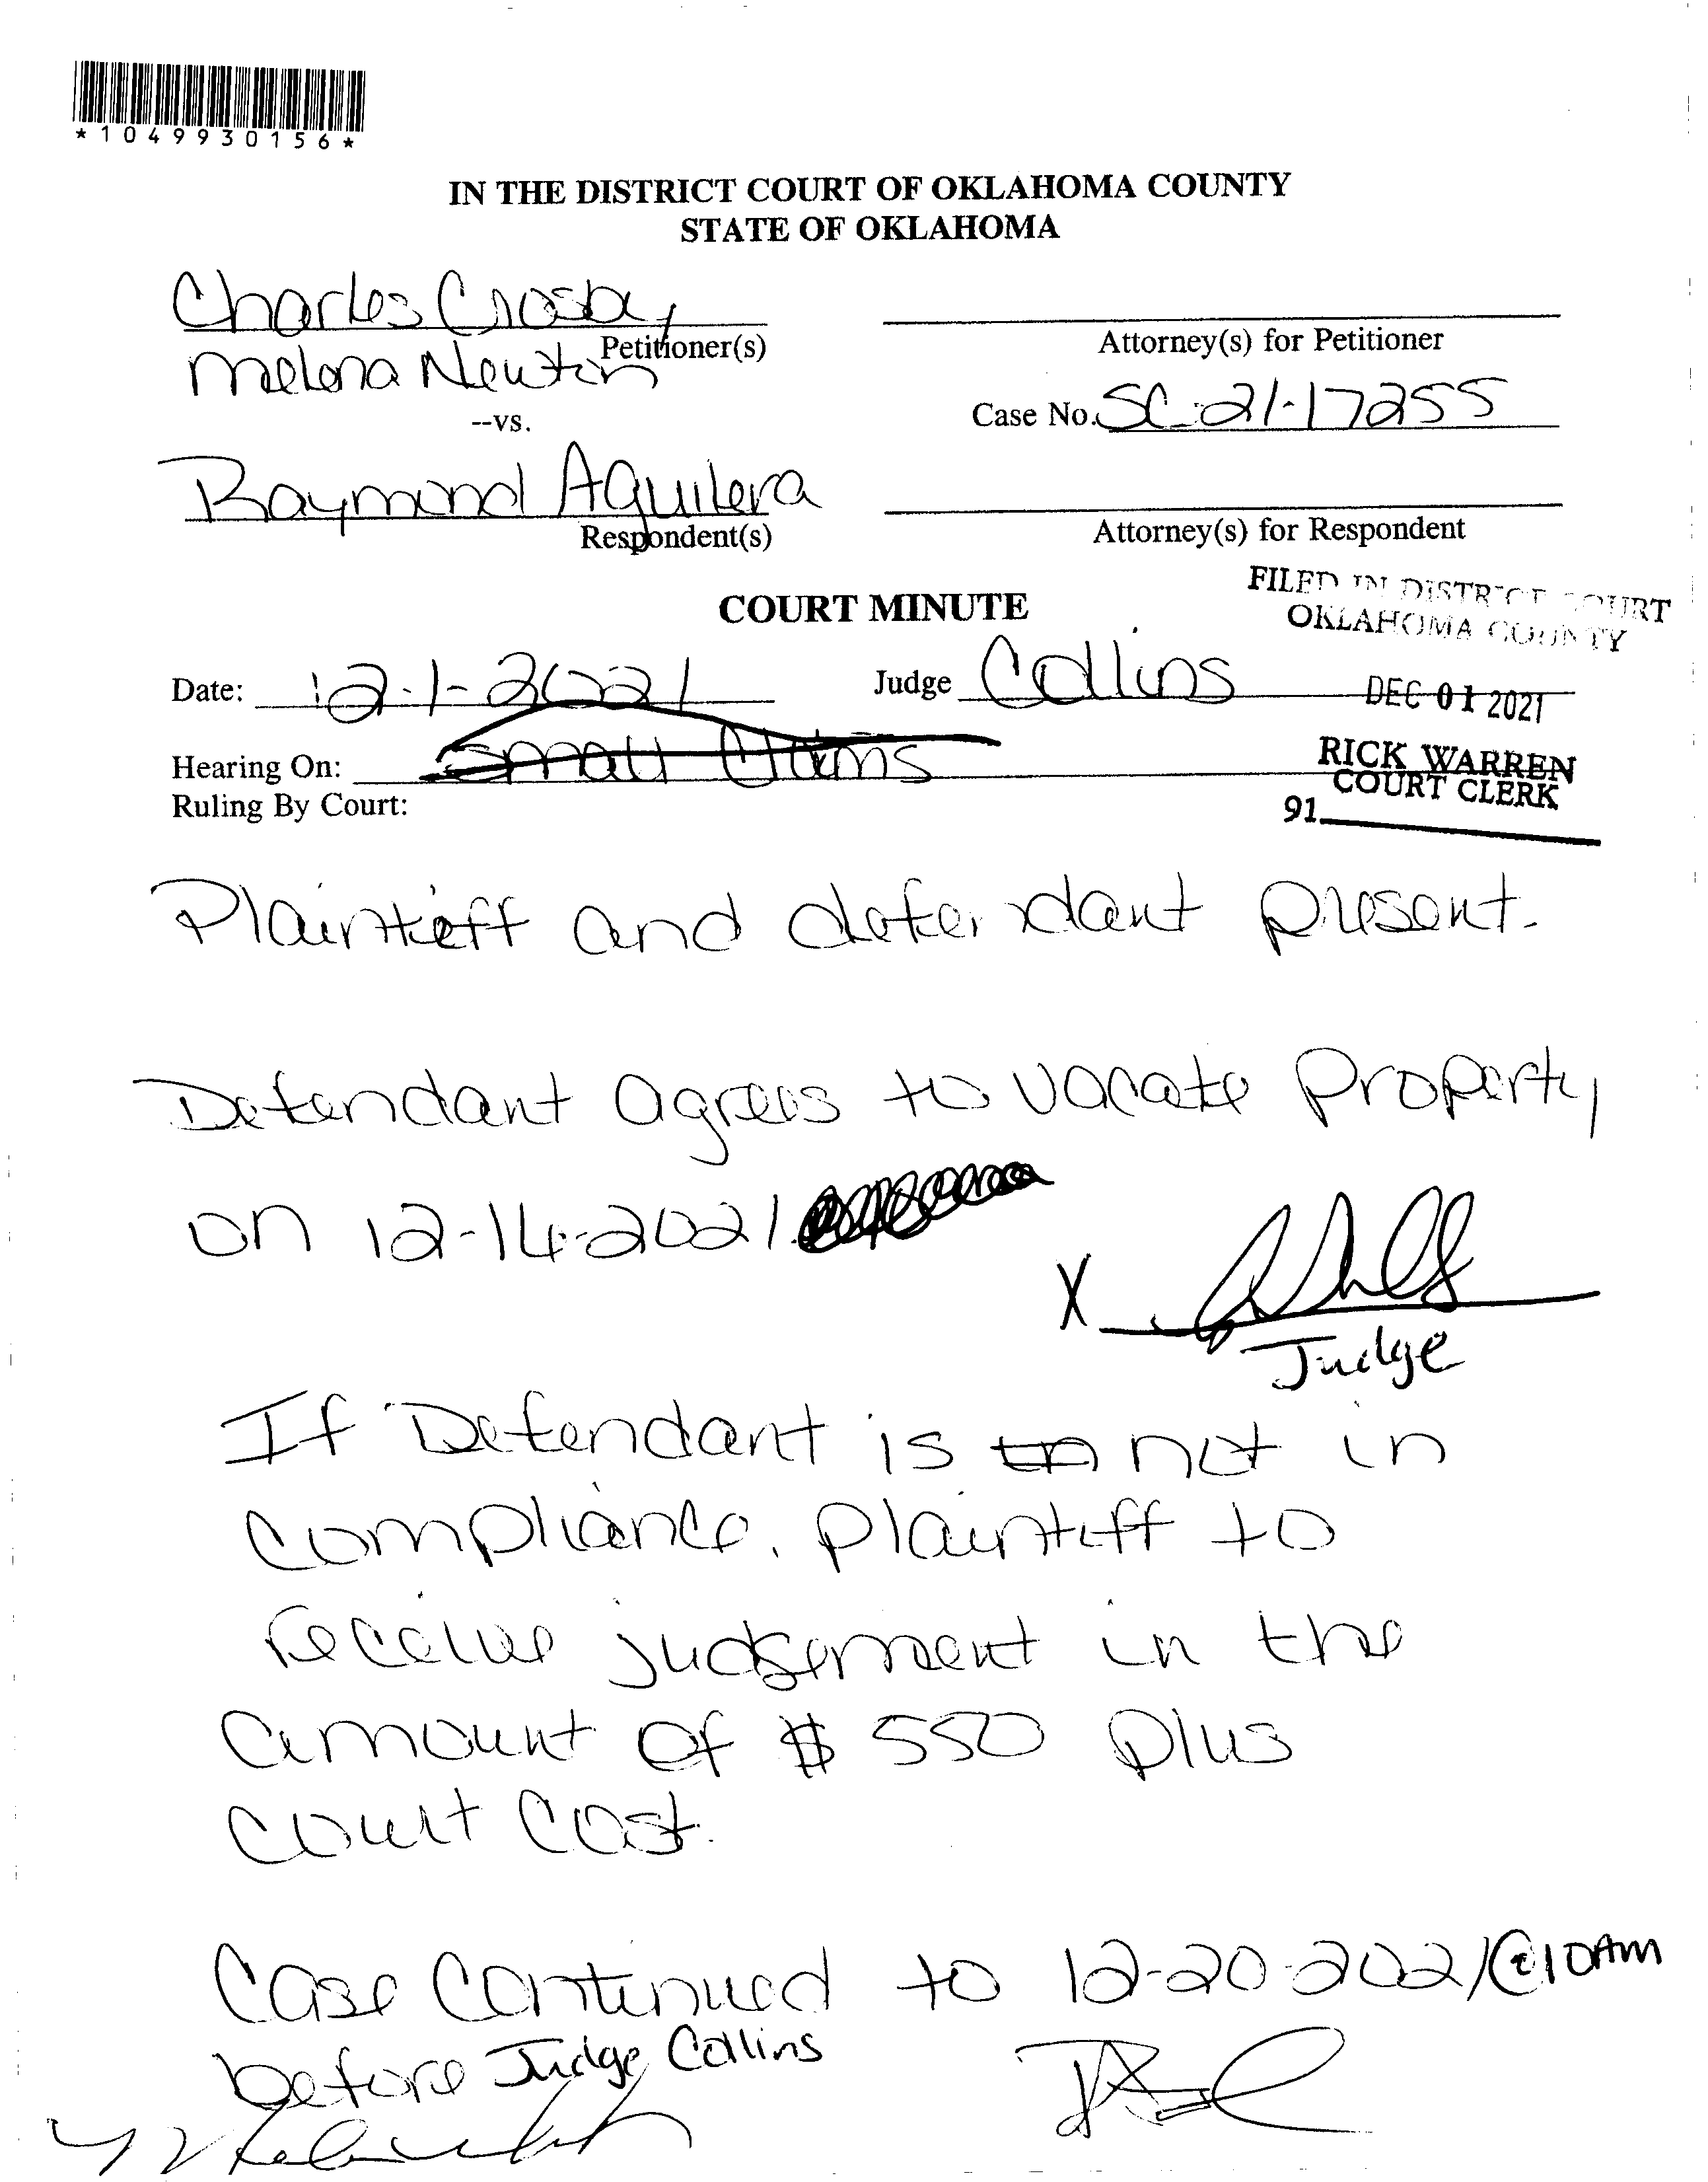 *1049930156*
IN THE DISTRICT COURT OF OKLAHOMA COUNTY
STATE OF OKLAHOMA
Charles Crosby
Petitioner(s)
Attorney(s) for Petitioner
Melona Newton
Case No. SC-21-17255
--vs.
Raymond Aguilera
Respondent(s)
Attorney(s) for Respondent
FILED IN DISTRICT COURT
OKLAHOMA COUNTY
COURT MINUTE
Date: 12-1-2021 Judge Collins
DEC 01 2021
Hearing On: Small Claims
RICK WARREN
COURT CLERK
Ruling By Court:
91
Plaintieff and defendant present.
Defendant agrees to vacate property
on 12-14-2021.
X
Judge
If Defendant is in not in
compliance, plaintiff to
receive judgement in the
amount of $550 plus
court cost.
Case continued to 12-20-2021 @10AM
before Judge Collins